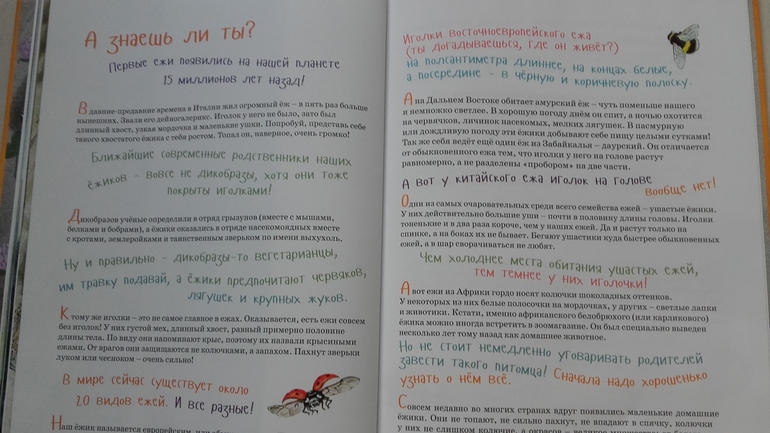 А знаешь ли ты?
Первые ежи появились на нашей планете
15 миллионов лет назад!
В давние-предавние времена в Италии жил огромный ёж – в пять раз больше
нынешних. Звали его дейногалерикс. Иголок у него не было, зато был
длинный хвост, узкая мордочка и маленькие ушки. Попробуй, представь себе
такого хвостатого ёжика с тебя ростом. Топал он, наверное, очень громко!
Ближайшие современные родственники наших
ёжиков – вовсе не дикобразы, хотя они тоже
покрыты иголками!
Дикобразов учёные определили в отряд грызунов (вместе с мышами,
белками и бобрами), а ёжики оказались в отряде насекомоядных вместе
с кротами, землеройками и таинственным зверьком по имени выхухоль.
Ну и правильно – дикобразы-то вегетарианцы,
им травку подавай, а ёжики предпочитают червяков,
лягушек и крупных жуков.
К тому же иголки – это не самое главное в ежах. Оказывается, есть ежи совсем
без иголок! У них густой мех, длинный хвост, равный примерно половине
длины тела. По виду они напоминают крыс, поэтому их назвали крысиными
ежами. От врагов они защищаются не колючками, а запахом. Пахнут зверьки
луком или чесноком – очень сильно!
В мире сейчас существует около
20 видов ежей. И все разные!
Наш ёжик называется европейским, или
Иголки восточноевропейского ежа
(ты догадываешься, где он живёт?)
на полсантиметра длиннее, на концах белые,
а посередине – в чёрную и коричневую полоску.
А на Дальнем Востоке обитает амурский ёж – чуть поменьше нашего
и немножко светлее. В хорошую погоду днём он спит, а ночью охотится
на червячков, личинок насекомых, мелких лягушек. В пасмурную
или дождливую погоду эти ёжики добывают себе пищу целыми сутками!
Так же себя ведёт ещё один ёж из Забайкалья – даурский. Он отличается
от обыкновенного ежа тем, что иголки у него на голове растут
равномерно, а не разделены «пробором» на две части.
А вот у китайского ежа иголок на голове
вообще нет!
Одни из самых очаровательных среди всего семейства ежей – ушастые ёжики.
У них действительно большие уши – почти в половину длины головы. Иголки
тоненькие и в два раза короче, чем у наших ежей. Да и растут только на
спинке, а на боках их не бывает. Бегают ушастики куда быстрее обыкновенных
ежей, а в шар сворачиваться не любят.
Чем холоднее места обитания ушастых ежей,
тем темнее у них иголочки!
А вот ежи из Африки гордо носят колючки шоколадных оттенков.
У некоторых из них белые полосочки на мордочках, у других – светлые лапки
и животики. Кстати, именно африканского белобрюхого (или карликового)
ёжика можно иногда встретить в зоомагазине. Он был специально выведен
несколько лет тому назад как домашнее животное.
Но не стоит немедленно уговаривать родителей
завести такого питомца! Сначала надо хорошенько
узнать о нём всё.
Совсем недавно во многих странах вдруг появились маленькие домашние
ёжики. Они не топают, не сильно пахнут, не впадают в спячку, колючки
у них не слишком колючие, а окрасов –